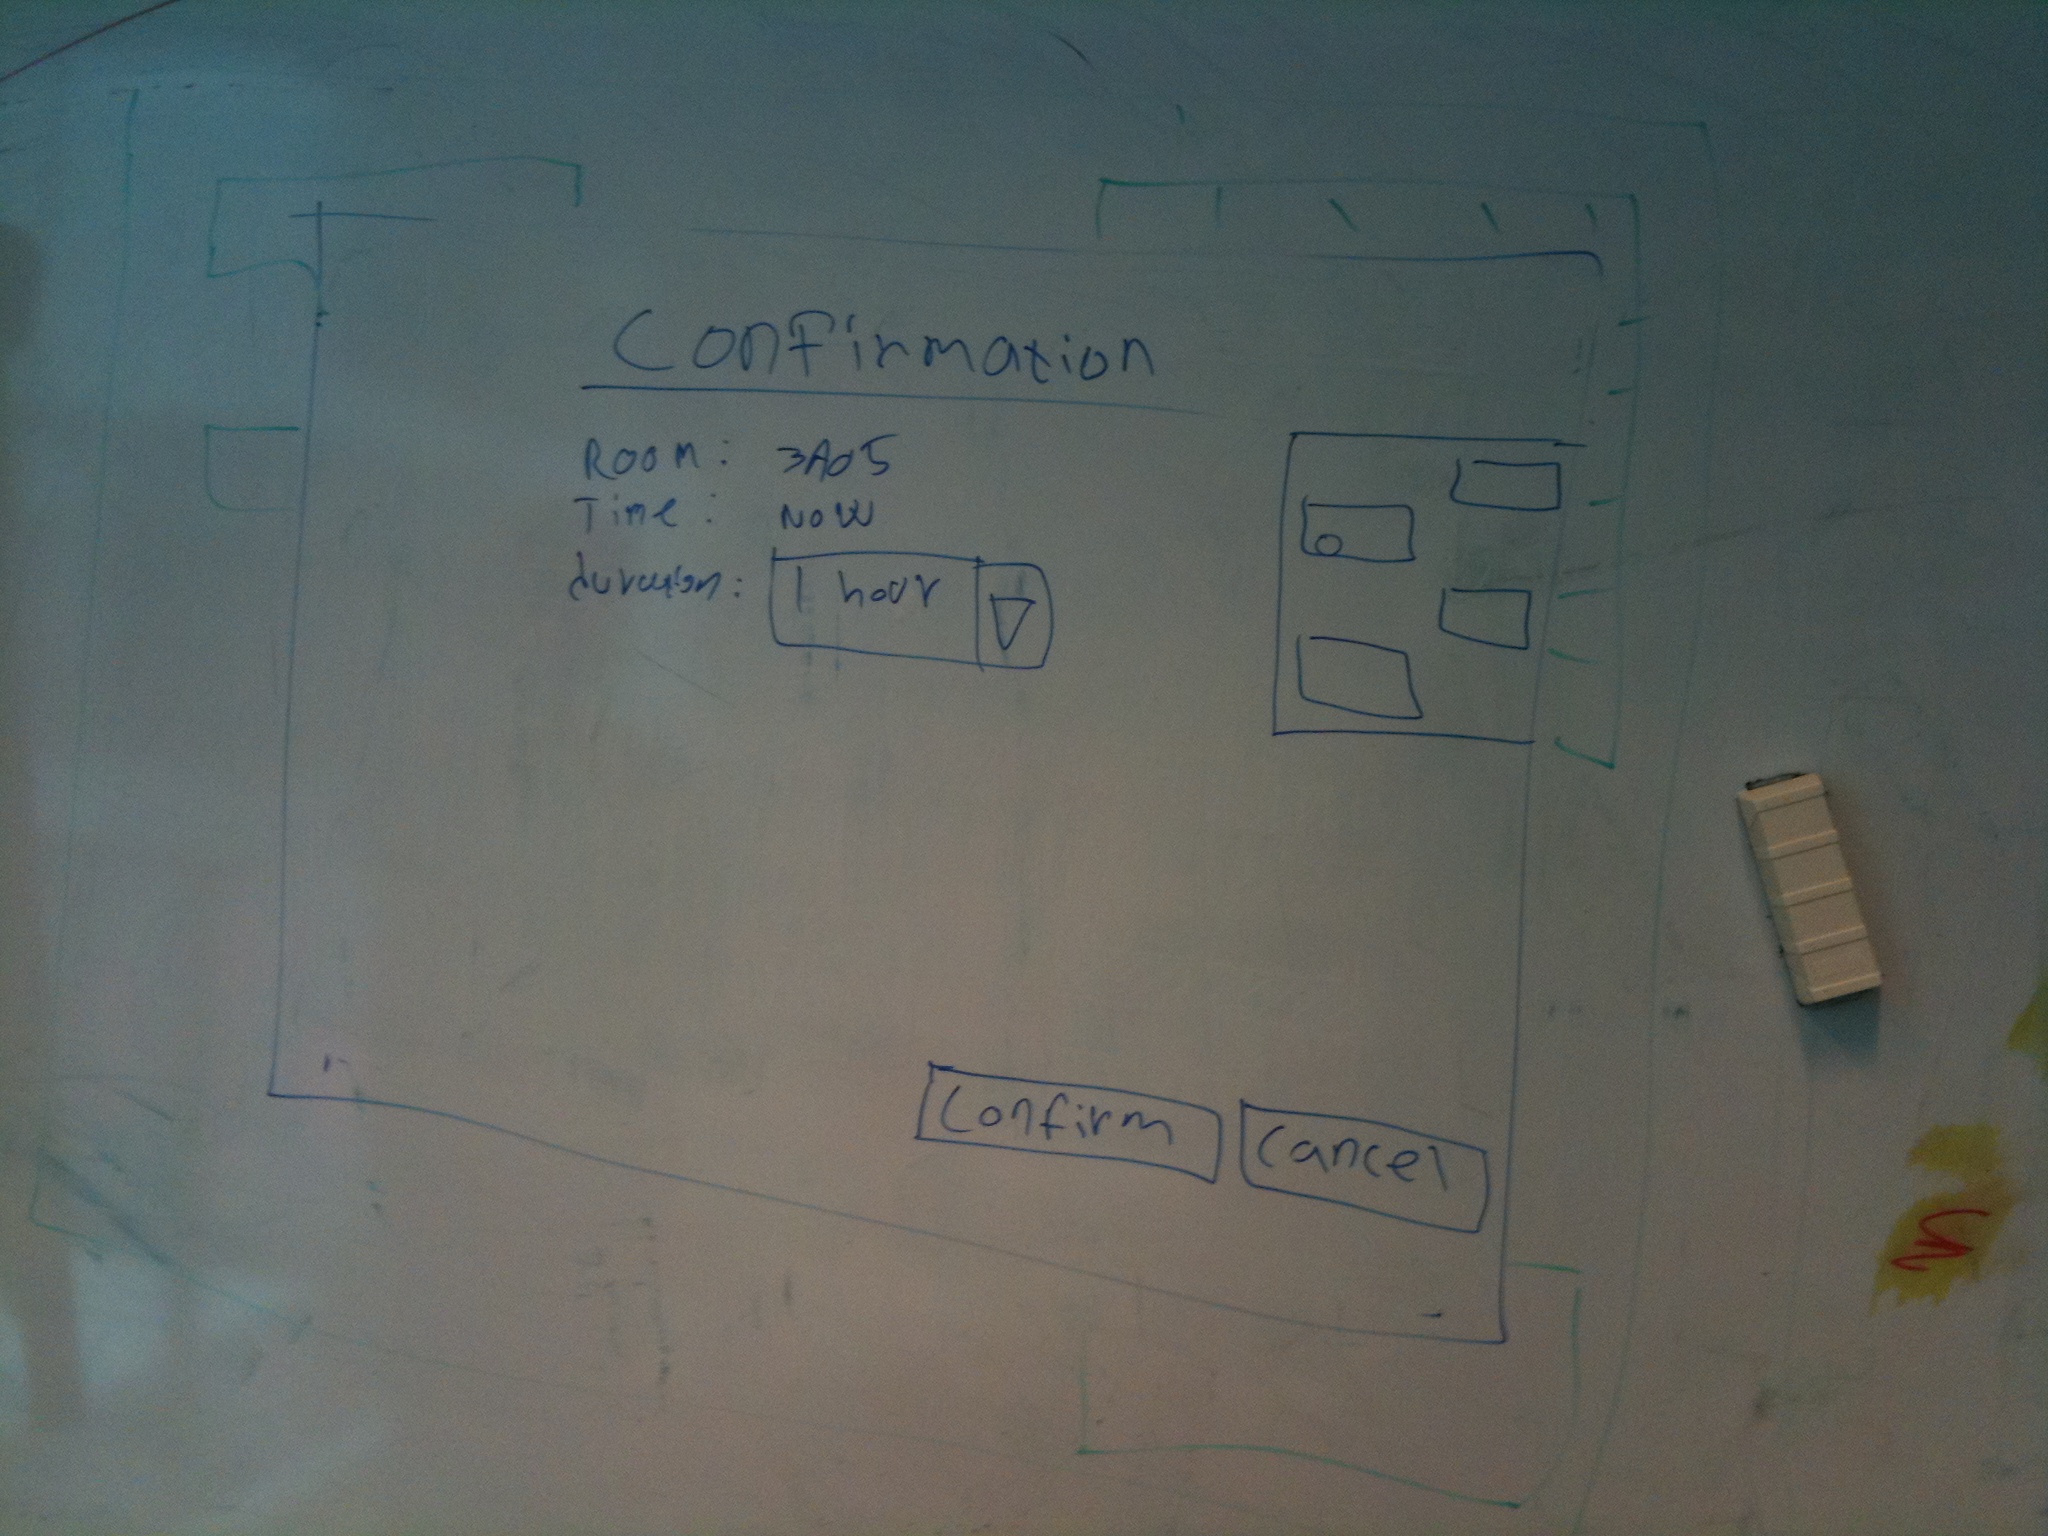 Confirmation
Room: 3A05
Time: NOW
duration: 1 hour
Confirm Cancel